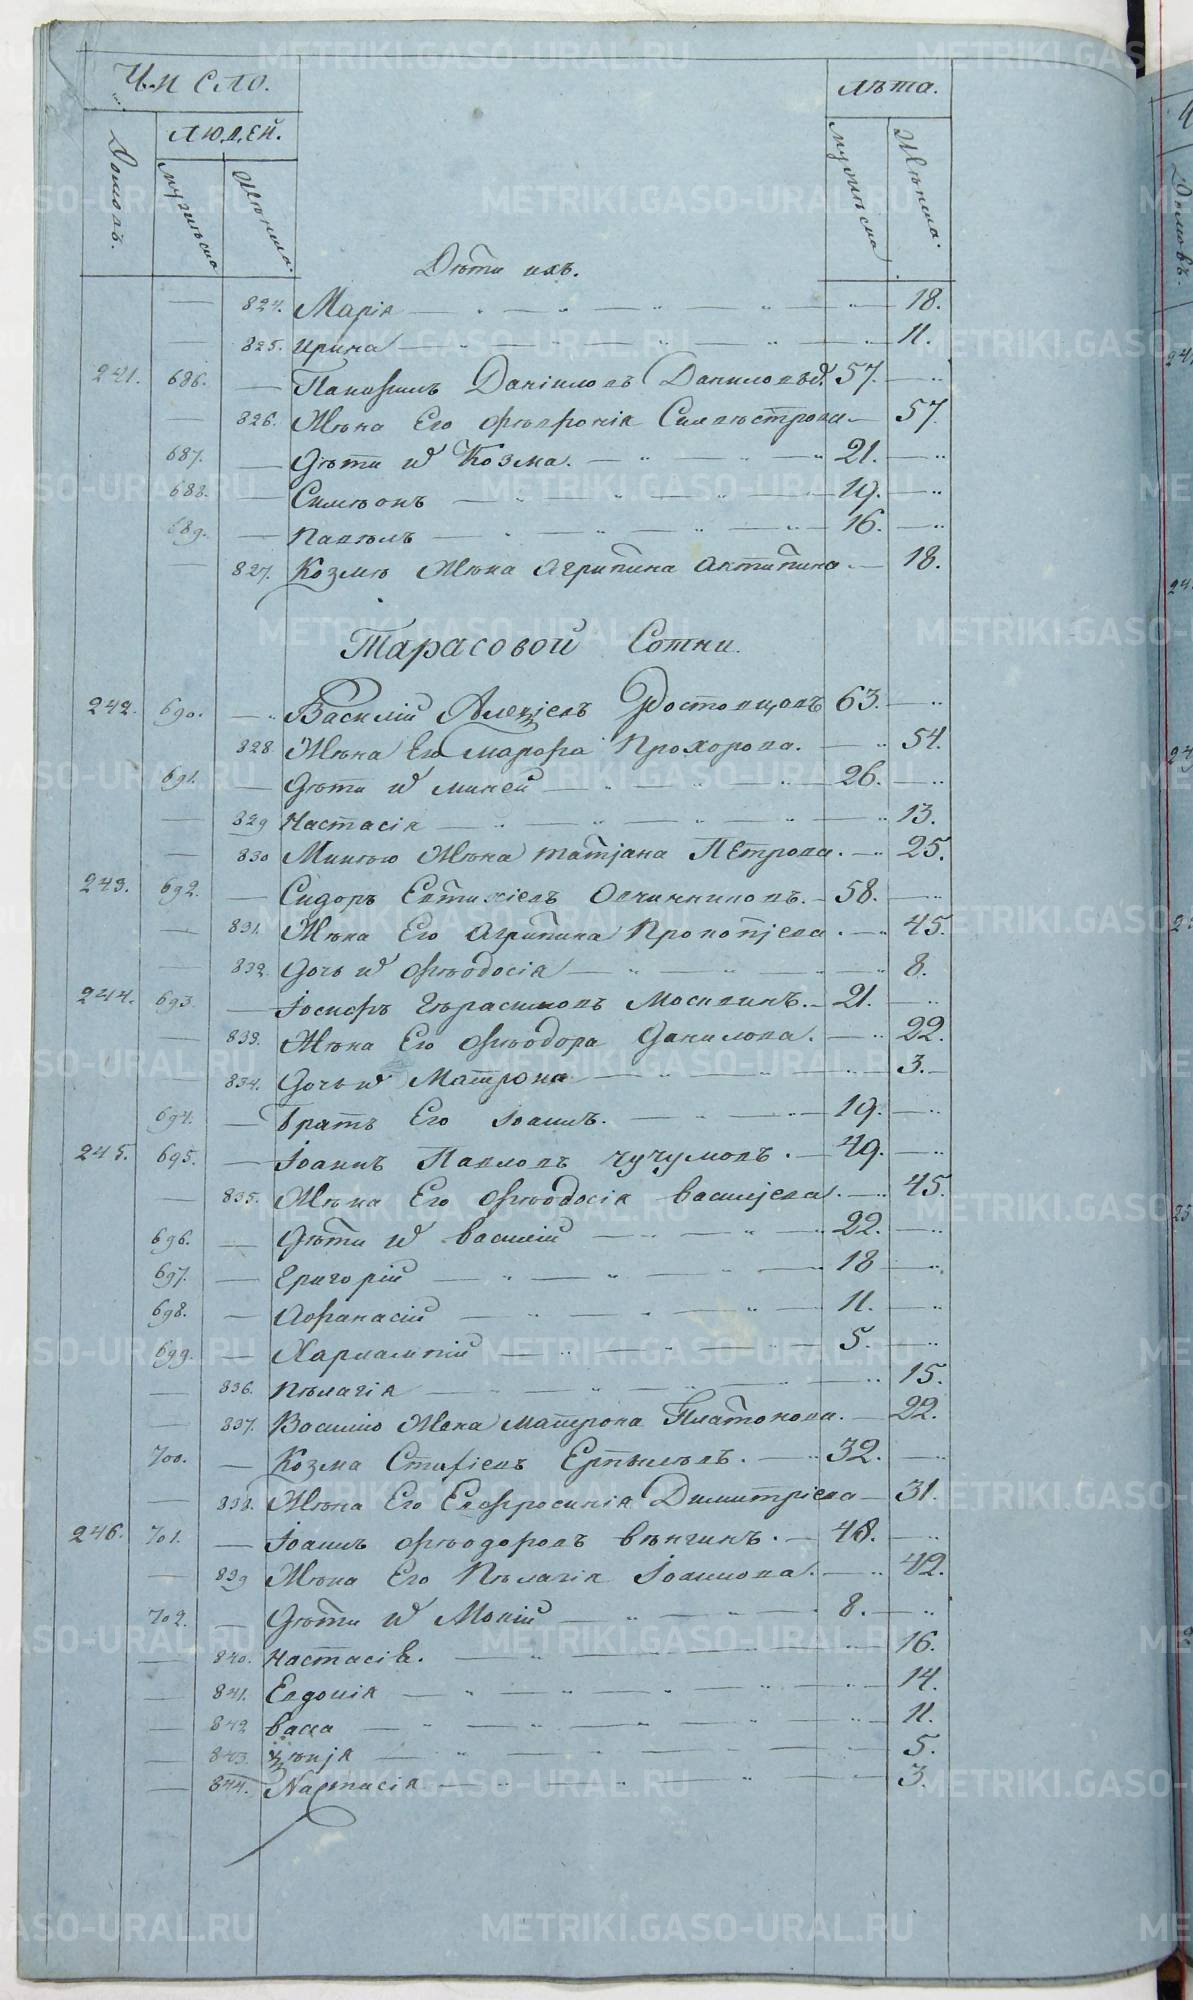 Число.
Лѣта.
Людей.
Домовъ.
мужеска
Женска.
мужеска
Женска.
Дѣти ихъ.
824. Марія 18.
825. Ирина 11.
241. 686. Данiиловъ 57.
826. Жѣна Его Фѣвронія Силвѣстрова 57.
687. Дѣти ѡ Козма. 21.
688. Симѣонъ 19.
689. Павѣлъ 16.
827. Козмѣ Жѣна Агрипина Антипина 18.
Тарасовой Сотни.
242. 690. Василій Алеѯіевъ Ростовцовъ 63.
828. Жѣна Его Марѳа Прохорова. 54.
691. Дѣти ѡ Миней 26.
829 Настасія 13.
830 Минѣю Жѣна Татјана Петрова. 25.
243. 692. Сидоръ Евтихіевъ Овчинниковъ. 58.
831. Жѣна Его Агрипина Прокопјева. 45.
832. Дочь ѡ Фѣодосія 8.
244. 693. Іосифъ Гѣрасимовъ Москвинъ. 21.
833. Жѣна Его Фѣодора Данилова. 22.
834. Дочь ѡ Матрона 3.
694. Братъ Его Іоаннъ. 19.
245. 695. Іоаннъ Павловъ Чучумовъ. 49.
835. Жѣна Его Фѣодосія Васильева. 45.
696. Дѣти ѡ Василій 22.
697. Григорій 18
698. Афанасій 11.
699. Харлампій 5.
836. Пѣлагія 15.
837. Василію Жена Матрона Платонова. 22.
700. Козма 32.
838. Жѣна Его Евфросинія Димитріева 31.
246. 701. Іоаннъ Фѣодоровъ Вѣнгинъ. 48.
839 Жѣна Его Пѣлагія Іоаннова. 42.
702. Дѣти ѡ Мокій 8.
840. Настасія. 16.
841. Евдокія 14.
842 Васса 11.
843. Ѯѣнја 5.
844. Настасія 3.
METRIKI.GASO-URAL.RU